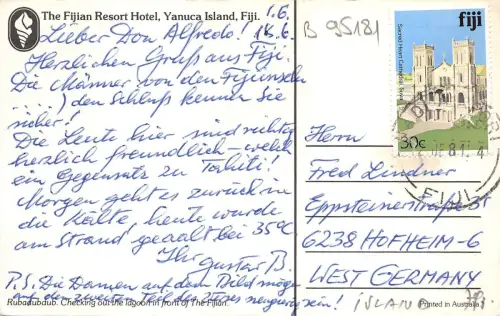 The Fijian Resort Hotel, Yanuca Island, Fiji.
1.6.
Lieber Don Alfredo!
Herzlichen Gruß aus Fiji.
Die Männer von den Fijiinseln
...) den Schluß kennen Sie
sicher!
Die Leute hier sind richtig
herzlich freundlich – welch
ein Gegensatz zu Tahiti!
Morgen geht es zurück in
die Kälte, heute wurde
am Strand geaalt bei 35°C
Ihr Gustav B
P.S. Die Damen auf dem Bild mögen
auf den zweiten Teil des Verses neugierig sein!
Rubadubdub. Checking out the lagoon in front of The Fijian.
B 95181
fiji
Sacred Heart Cathedral, Suva
30c
81
FIJI
Herrn
Fred Lindner
Eppsteinerstraße
6238 HOFHEIM-6
WEST GERMANY
ISLAND
Printed in Australia